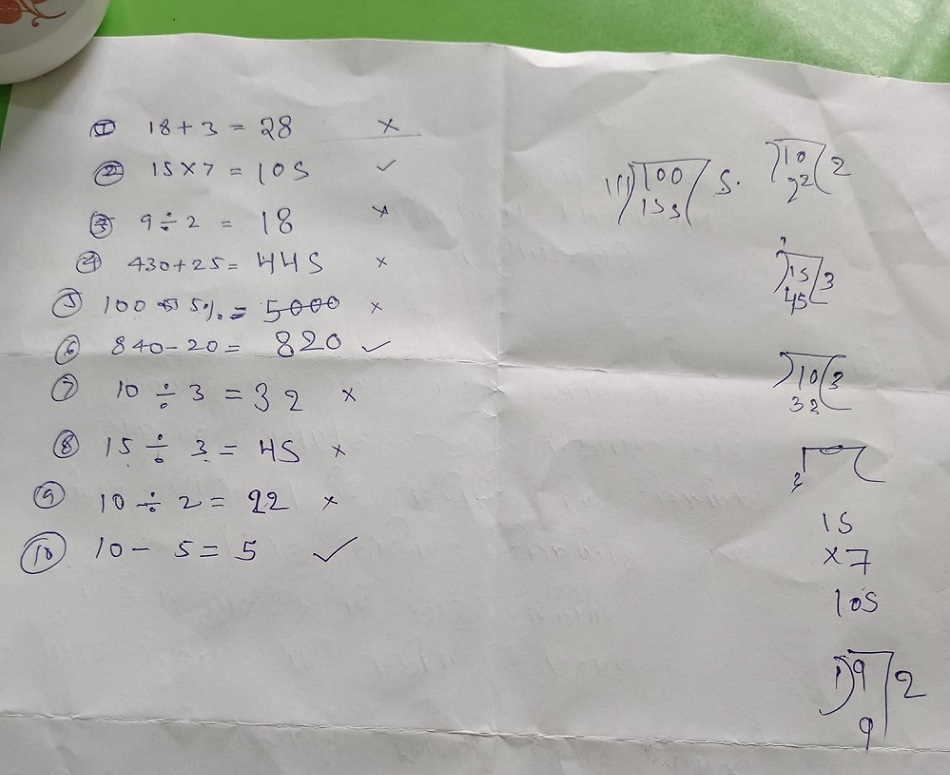 ① 18 + 3 = 28 ×
② 15 × 7 = 105 ✓
③ 9 ÷ 2 = 18 ×
④ 430 + 25 = 445 ×
⑤ 100 5% = 5000 ×
⑥ 840 - 20 = 820 ✓
⑦ 10 ÷ 3 = 32 ×
⑧ 15 ÷ 3 = 45 ×
⑨ 10 ÷ 2 = 22 ×
⑩ 10 - 5 = 5 ✓
100 5.
155
10 2
22
15 3
45
10 3
32
3
15
×7
105
9 2
9